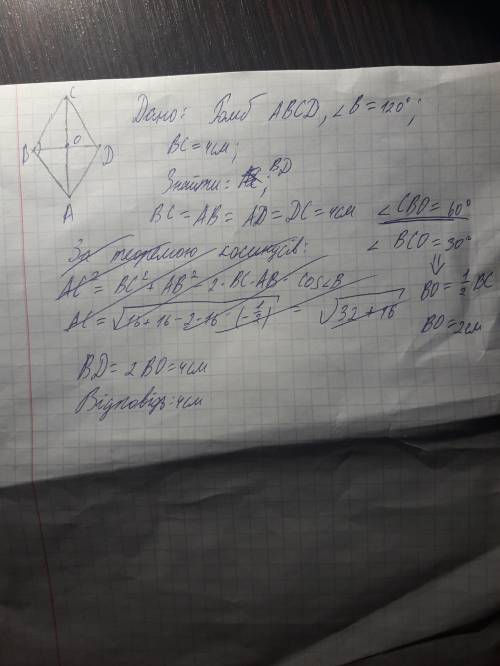 C
B
O
D
A
Дано: Ромб ABCD, ∠B=120°;
BC=4см;
Знайти: BD
BC = AB = AD = DC = 4см
∠CBO = 60°
∠BCO = 30°
⇓
BO = 1/2 BC
BO = 2см
За теоремою косинусів:
AC² = BC² + AB² - 2·BC·AB·cos∠B
AC = √16+16-2·16·(-1/2) = √32+16
BD = 2BO = 4см
Відповідь: 4см